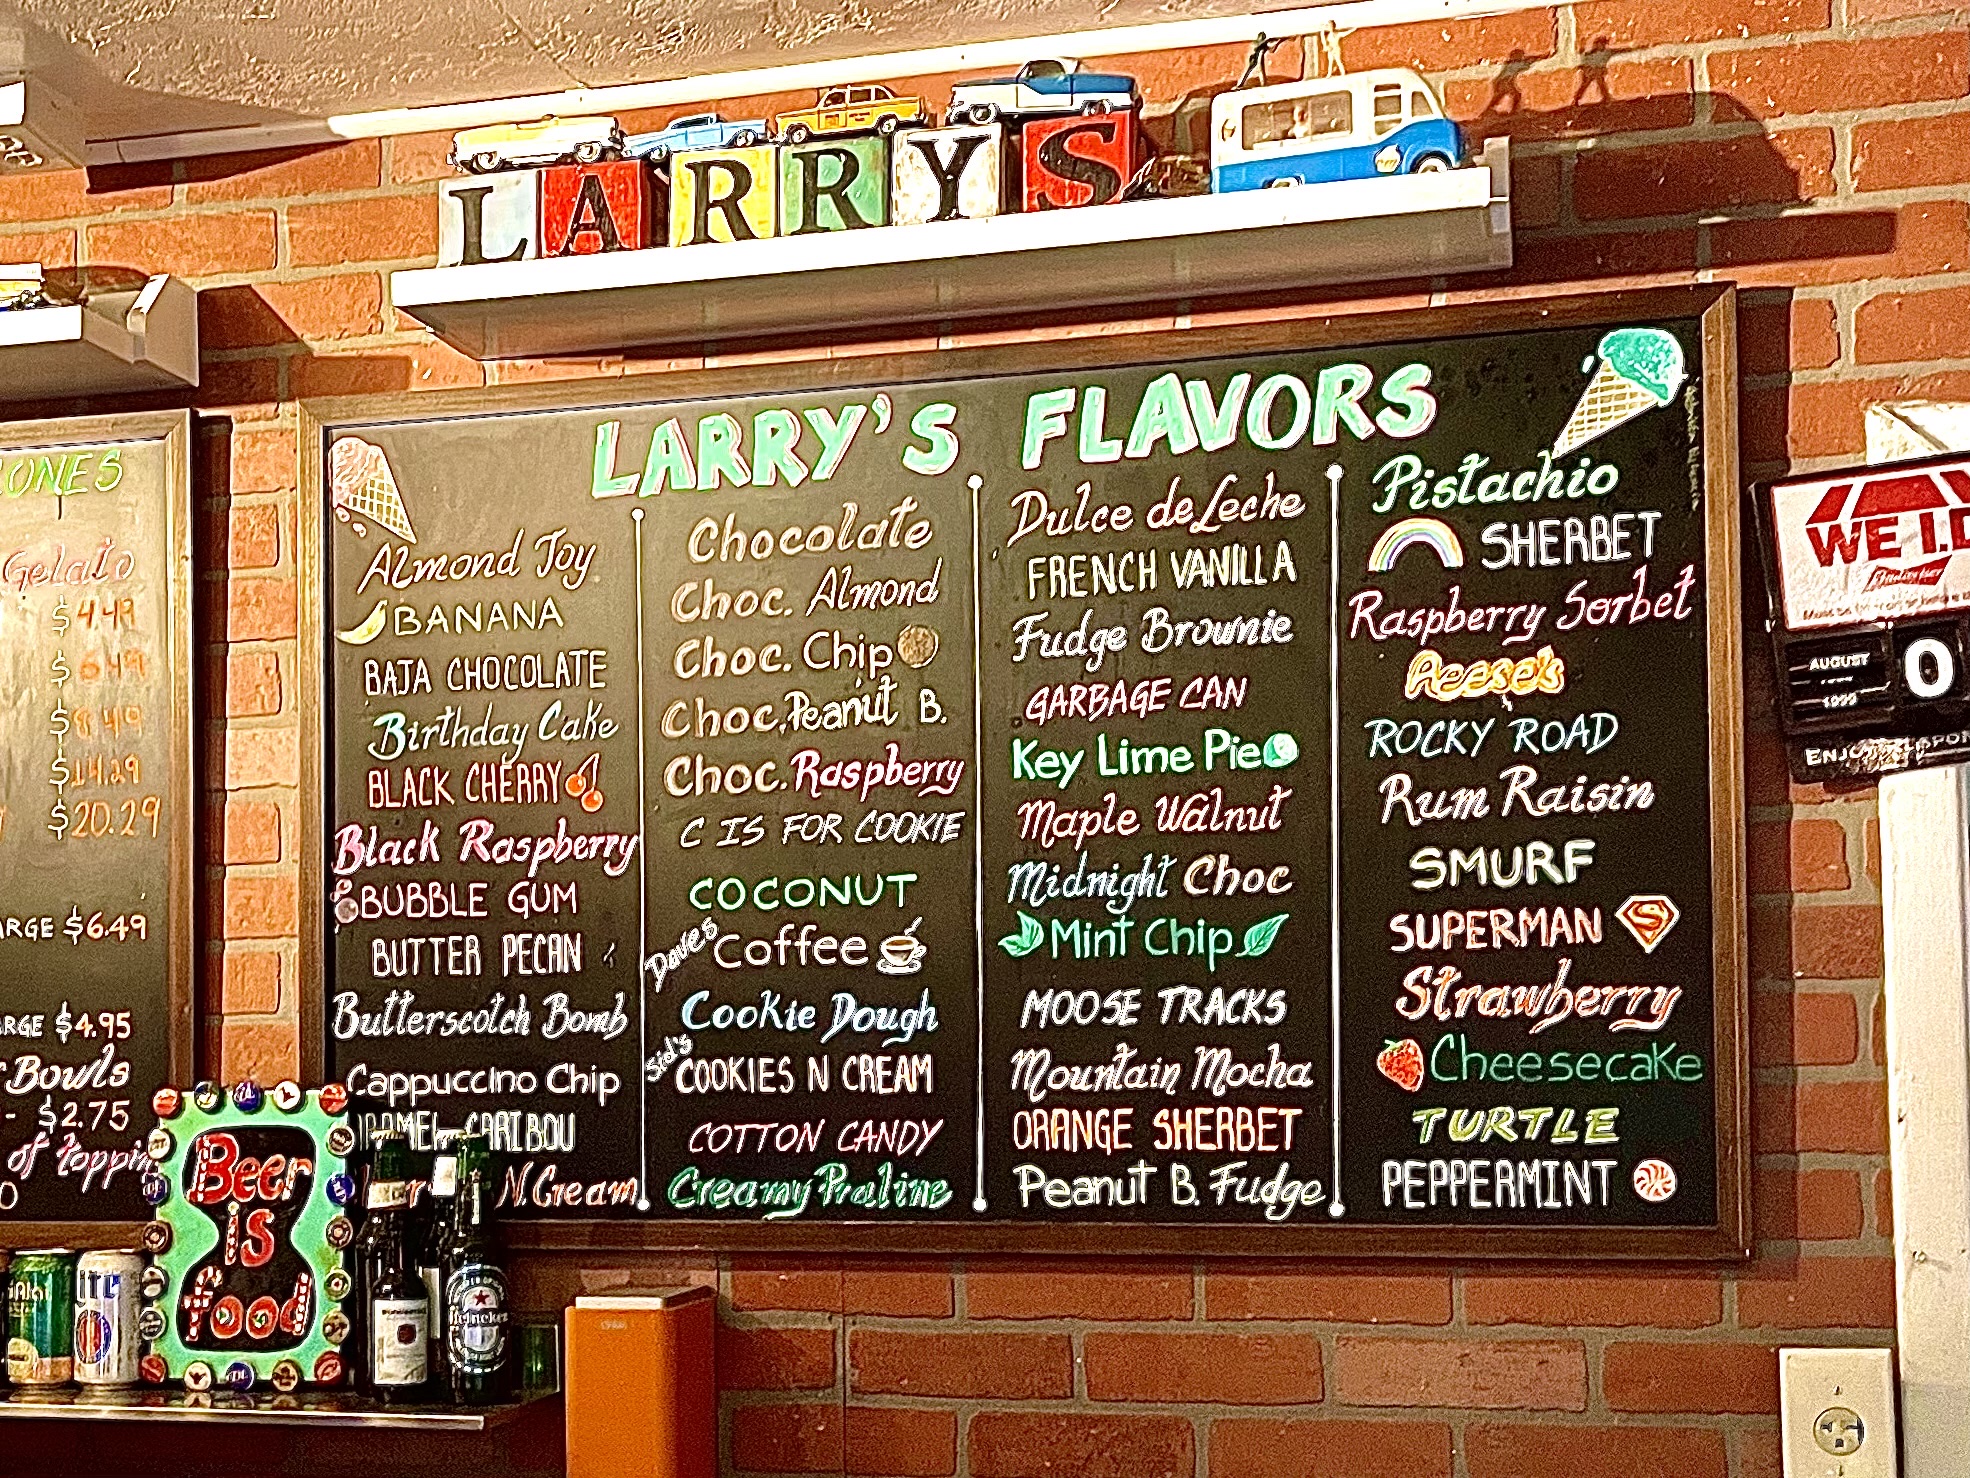 LARRYS
LARRY'S FLAVORS
Almond Joy
BANANA
BAJA CHOCOLATE
Birthday Cake
BLACK CHERRY
Black Raspberry
BUBBLE GUM
BUTTER PECAN
Butterscotch Bomb
Cappuccino Chip
CARIBOU
N. Cream
Chocolate
Choc. Almond
Choc. Chip
Choc. Peanut B.
Choc. Raspberry
C IS FOR COOKIE
COCONUT
Daves Coffee
Cookie Dough
Sid's COOKIES N CREAM
COTTON CANDY
Creamy Praline
Dulce de Leche
FRENCH VANILLA
Fudge Brownie
GARBAGE CAN
Key Lime Pie
Maple Walnut
Midnight Choc
Mint Chip
MOOSE TRACKS
Mountain Mocha
ORANGE SHERBET
Peanut B. Fudge
Pistachio
SHERBET
Raspberry Sorbet
Reese's
ROCKY ROAD
Rum Raisin
SMURF
SUPERMAN S
Strawberry
Cheesecake
TURTLE
PEPPERMINT
Gelato
$4.49
$6.49
$8.49
$14.29
$20.29
$6.49
$4.95
Bowls
- $2.75
of
Beer
is
food
Heineken
WE I.D
Budweiser
AUGUST
1999
0